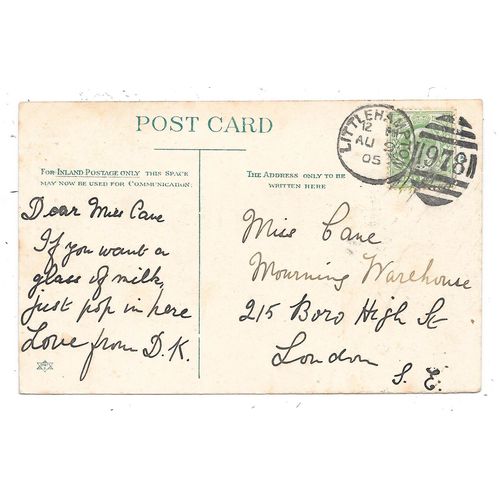 POST CARD
FOR INLAND POSTAGE ONLY THIS SPACE
MAY NOW BE USED FOR COMMUNICATION.
THE ADDRESS ONLY TO BE
WRITTEN HERE
LITTLEHAM
12
AU
05
978
Dear Miss Cane
If you want a
glass of milk,
just pop in here
Love from D.K.
Miss Cane
Mourning Warehouse
215 Boro High St
London
S.E.